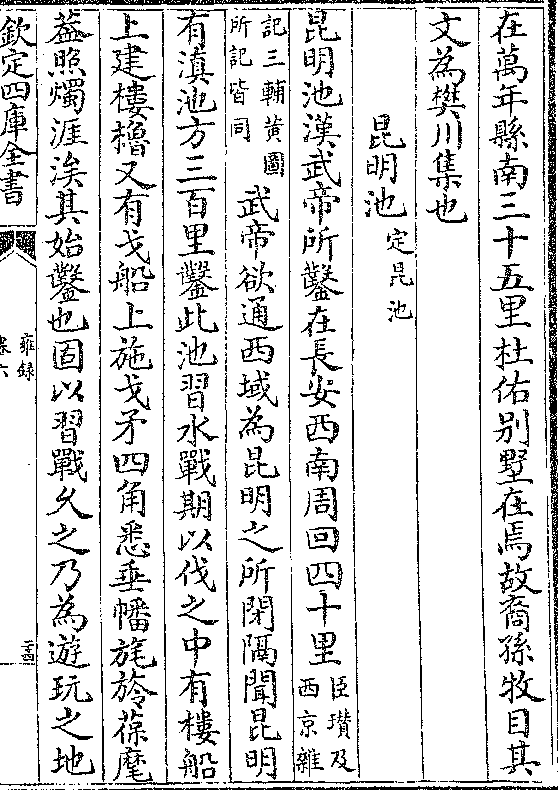 在萬年縣南三十五里杜佑别墅在焉故裔孫牧目其
文為樊川集也
昆明池定昆池
昆明池漢武帝所鑿在長安西南周回四十里臣瓚及西京雜
記三輔黄圖所記皆同武帝欲通西域為昆明之所閉隔聞昆明
有滇池方三百里鑿此池習水戰期以伐之中有樓船
上建樓櫓又有戈船上施戈矛四角悉垂幡旄旍葆麾
葢照燭涯涘其始鑿也固以習戰久之乃為遊玩之地
欽定四庫全書
雍録
卷六
二十四